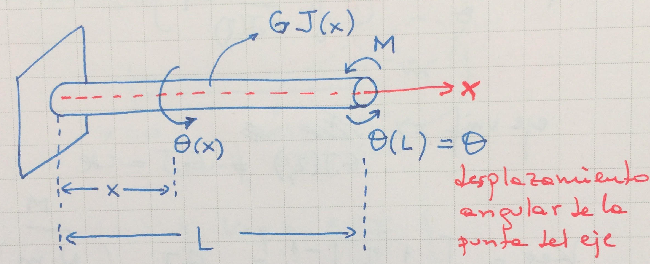 GJ(x)
M
x
θ(x)
θ(L) = θ
desplazamiento
angular de la
punta del eje
x
L